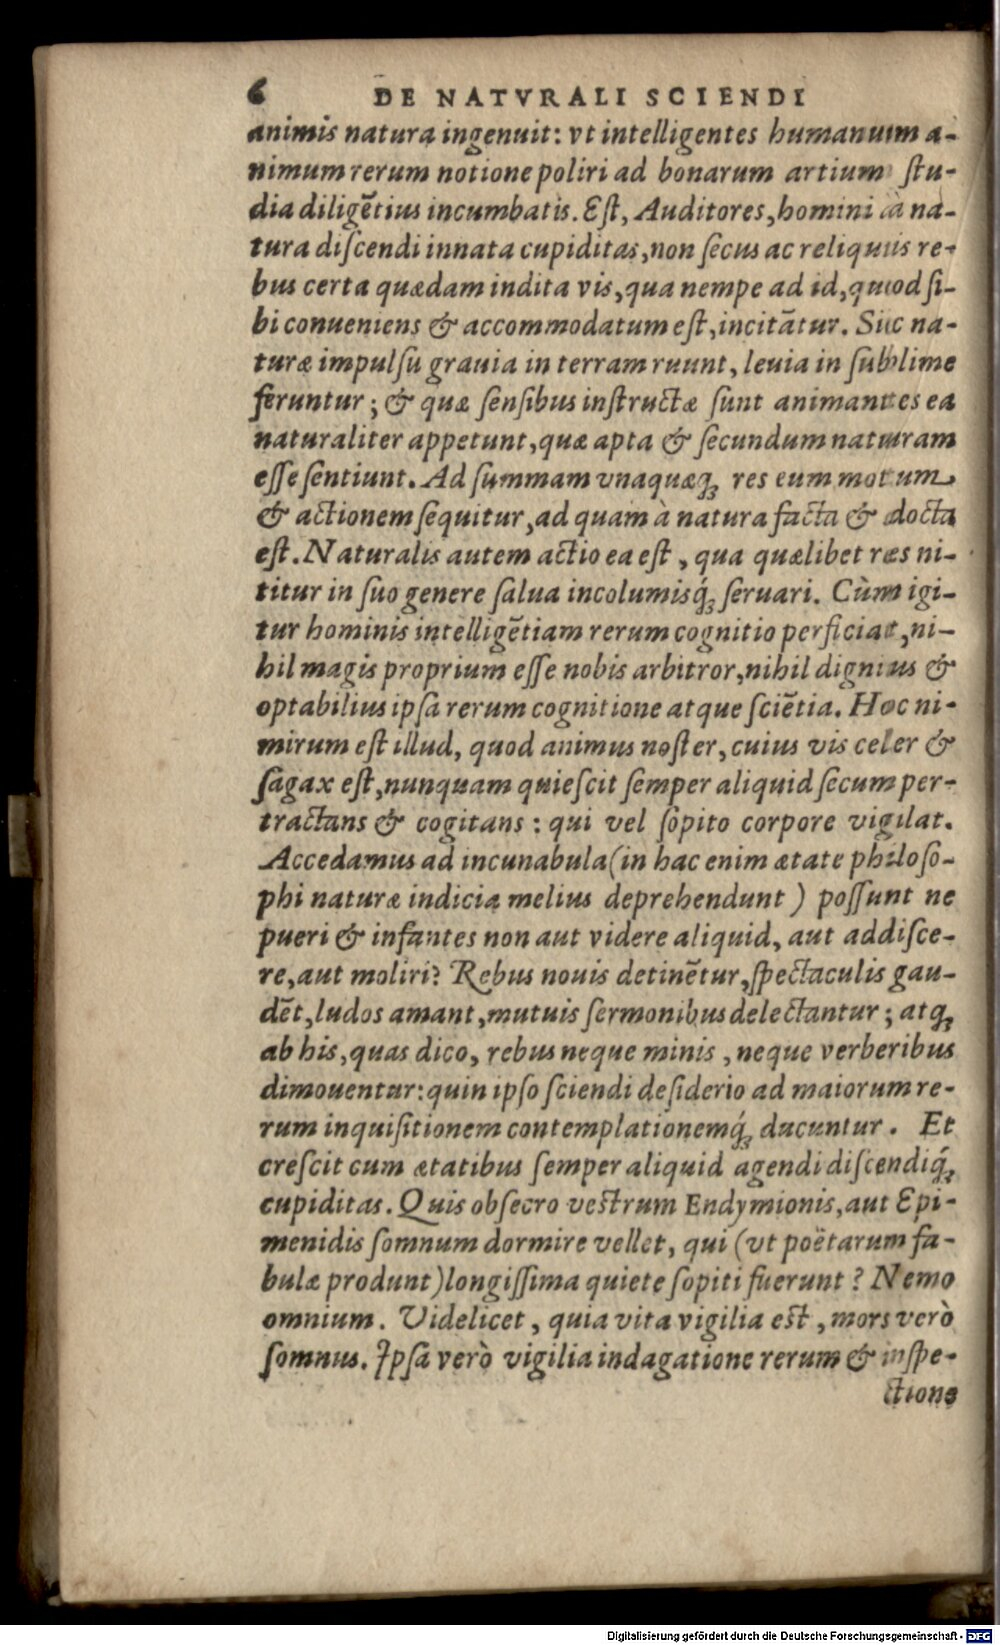 6 DE NATVRALI SCIENDI
animis natura ingenuit: vt intelligentes humanum a-
nimum rerum notione poliri ad bonarum artium ſtu-
dia diligẽtius incumbatis. Eſt, Auditores, homini à na-
tura diſcendi innata cupiditas, non ſecus ac reliquis re-
bus certa quædam indita vis, qua nempe ad id, quod ſi-
bi conueniens & accommodatum eſt, incitãtur. Sic na-
turæ impulſu grauia in terram ruunt, leuia in ſublime
feruntur; & quæ ſenſibus inſtructæ ſunt animantes ea
naturaliter appetunt, quæ apta & ſecundum naturam
eſſe ſentiunt. Ad ſummam vnaquæq; res eum motum
& actionem ſequitur, ad quam à natura facta & docta
eſt. Naturalis autem actio ea eſt, qua quælibet res ni-
titur in ſuo genere ſalua incolumisq́; ſeruari. Cùm igi-
tur hominis intelligẽtiam rerum cognitio perficiat, ni-
hil magis proprium eſſe nobis arbitror, nihil dignius &
optabilius ipſa rerum cognitione atque ſciẽtia. Hoc ni-
mirum eſt illud, quod animus noſter, cuius vis celer &
ſagax eſt, nunquam quieſcit ſemper aliquid ſecum per-
tractans & cogitans: qui vel ſopito corpore vigilat.
Accedamus ad incunabula (in hac enim ætate philoſo-
phi naturæ indicia melius deprehendunt) poſſunt ne
pueri & infantes non aut videre aliquid, aut addiſce-
re, aut moliri? Rebus nouis detinẽtur, ſpectaculis gau-
dẽt, ludos amant, mutuis ſermonibus delectantur; atq;
ab his, quas dico, rebus neque minis, neque verberibus
dimouentur: quin ipſo ſciendi deſiderio ad maiorum re-
rum inquiſitionem contemplationemq́; ducuntur. Et
creſcit cum ætatibus ſemper aliquid agendi diſcendiq́;
cupiditas. Quis obſecro veſtrum Endymionis, aut Epi-
menidis ſomnum dormire vellet, qui (vt poëtarum fa-
bulæ produnt) longiſſima quiete ſopiti fuerunt? Nemo
omnium. Videlicet, quia vita vigilia eſt, mors verò
ſomnus. Ipſa verò vigilia indagatione rerum & inſpe-
ctione
Digitalisierung gefördert durch die Deutsche Forschungsgemeinschaft - DFG